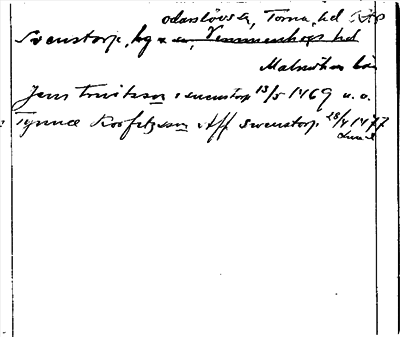 odarslövs sn, Torna hd
Svenstorp, by o. sn, Vemmenhögs hd
Malmöhus län
Jens truitzson i suenstorp 13/5 1469 u. o.
Tynnæ Roofitzson Aff swenstorp 28/4 1477
Lund